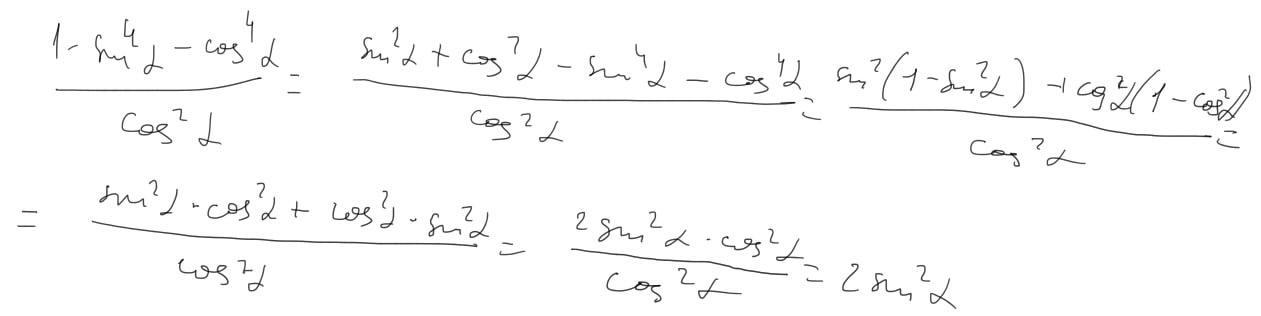 \frac{1 - \sin^4 α - \cos^4 α}{\cos^2 α} = \frac{\sin^2 α + \cos^2 α - \sin^4 α - \cos^4 α}{\cos^2 α} = \frac{\sin^2 (1 - \sin^2 α) + \cos^2 α (1 - \cos^2 α)}{\cos^2 α} =
= \frac{\sin^2 α \cdot \cos^2 α + \cos^2 α \cdot \sin^2 α}{\cos^2 α} = \frac{2 \sin^2 α \cdot \cos^2 α}{\cos^2 α} = 2 \sin^2 α